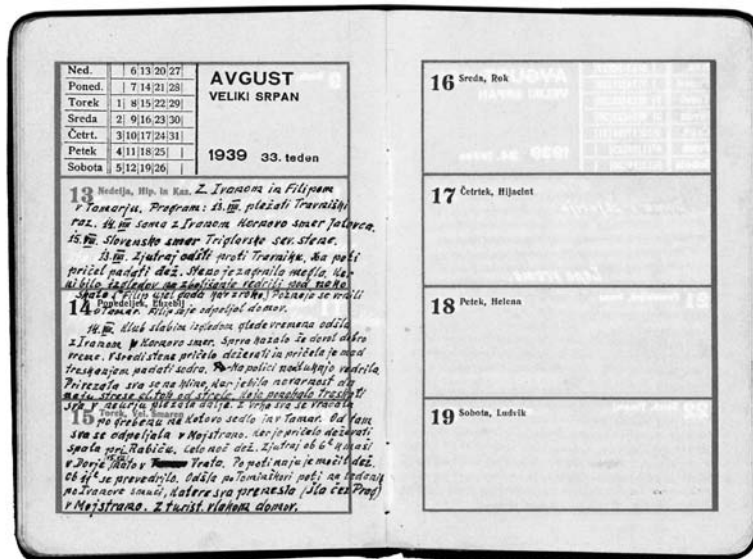 Ned. 6 13 20 27
Poned. 7 14 21 28
Torek 1 8 15 22 29
Sreda 2 9 16 23 30
Četrt. 3 10 17 24 31
Petek 4 11 18 25
Sobota 5 12 19 26
AVGUST
VELIKI SRPAN
1939 33. teden
13 Nedelja, Hip. in Kas. Z Ivanom in Filipom
v Tamarju. Program: 13. VIII. plezati Travniški
raz. 14. VIII sama z Ivanom Hornovo smer Jalovca.
15. VIII Slovensko smer Triglavske sev. stene.
13. VIII. Zjutraj odšli proti Travniku. Na poti
pričel padati dež. Steno je zagrnila megla. Ker
ni bilo izgledov na zboljšanje vedrili pod neko
skalo (Filip ) Pozneje se vrnili
v Tamar. Filip se je odpeljal domov.
14 Ponedeljek, Euzebij
14. VIII. Kljub slabim izgledom glede vremena odšla
z Ivanom v Hornovo smer. Sprva kazalo že dovolj dobro
vreme. V sredi stene pričelo deževati in pričela je med
treskanjem padati sodra. Na polici pod vedrila.
sva se na kline, ker je bilo nevarnost da
naju strese od strele, ko je ponehalo treskati
sva v neurju plezala dalje. Z vrha sva se vračala
15 Torek, Vel. Šmaren
po grebenu na Kotovo sedlo in v Tamar. Od tam
sva se odpeljala v Mojstrano. Ker je pričelo deževati
spala pri Rabiču. Celo noč dež. Zjutraj ob 6h k maši
v Dovje (15.VIII) nato v Vrata. Po poti naju je močil dež.
Ob se prevedrilo. Odšla po Tominškovi poti na
po Ivanove smuči, katere sva prenesla (šla čez Prag)
v Mojstrano. Z turist. vlakom domov.
16 Sreda, Rok
17 Četrtek, Hijacint
18 Petek, Helena
19 Sobota, Ludvik